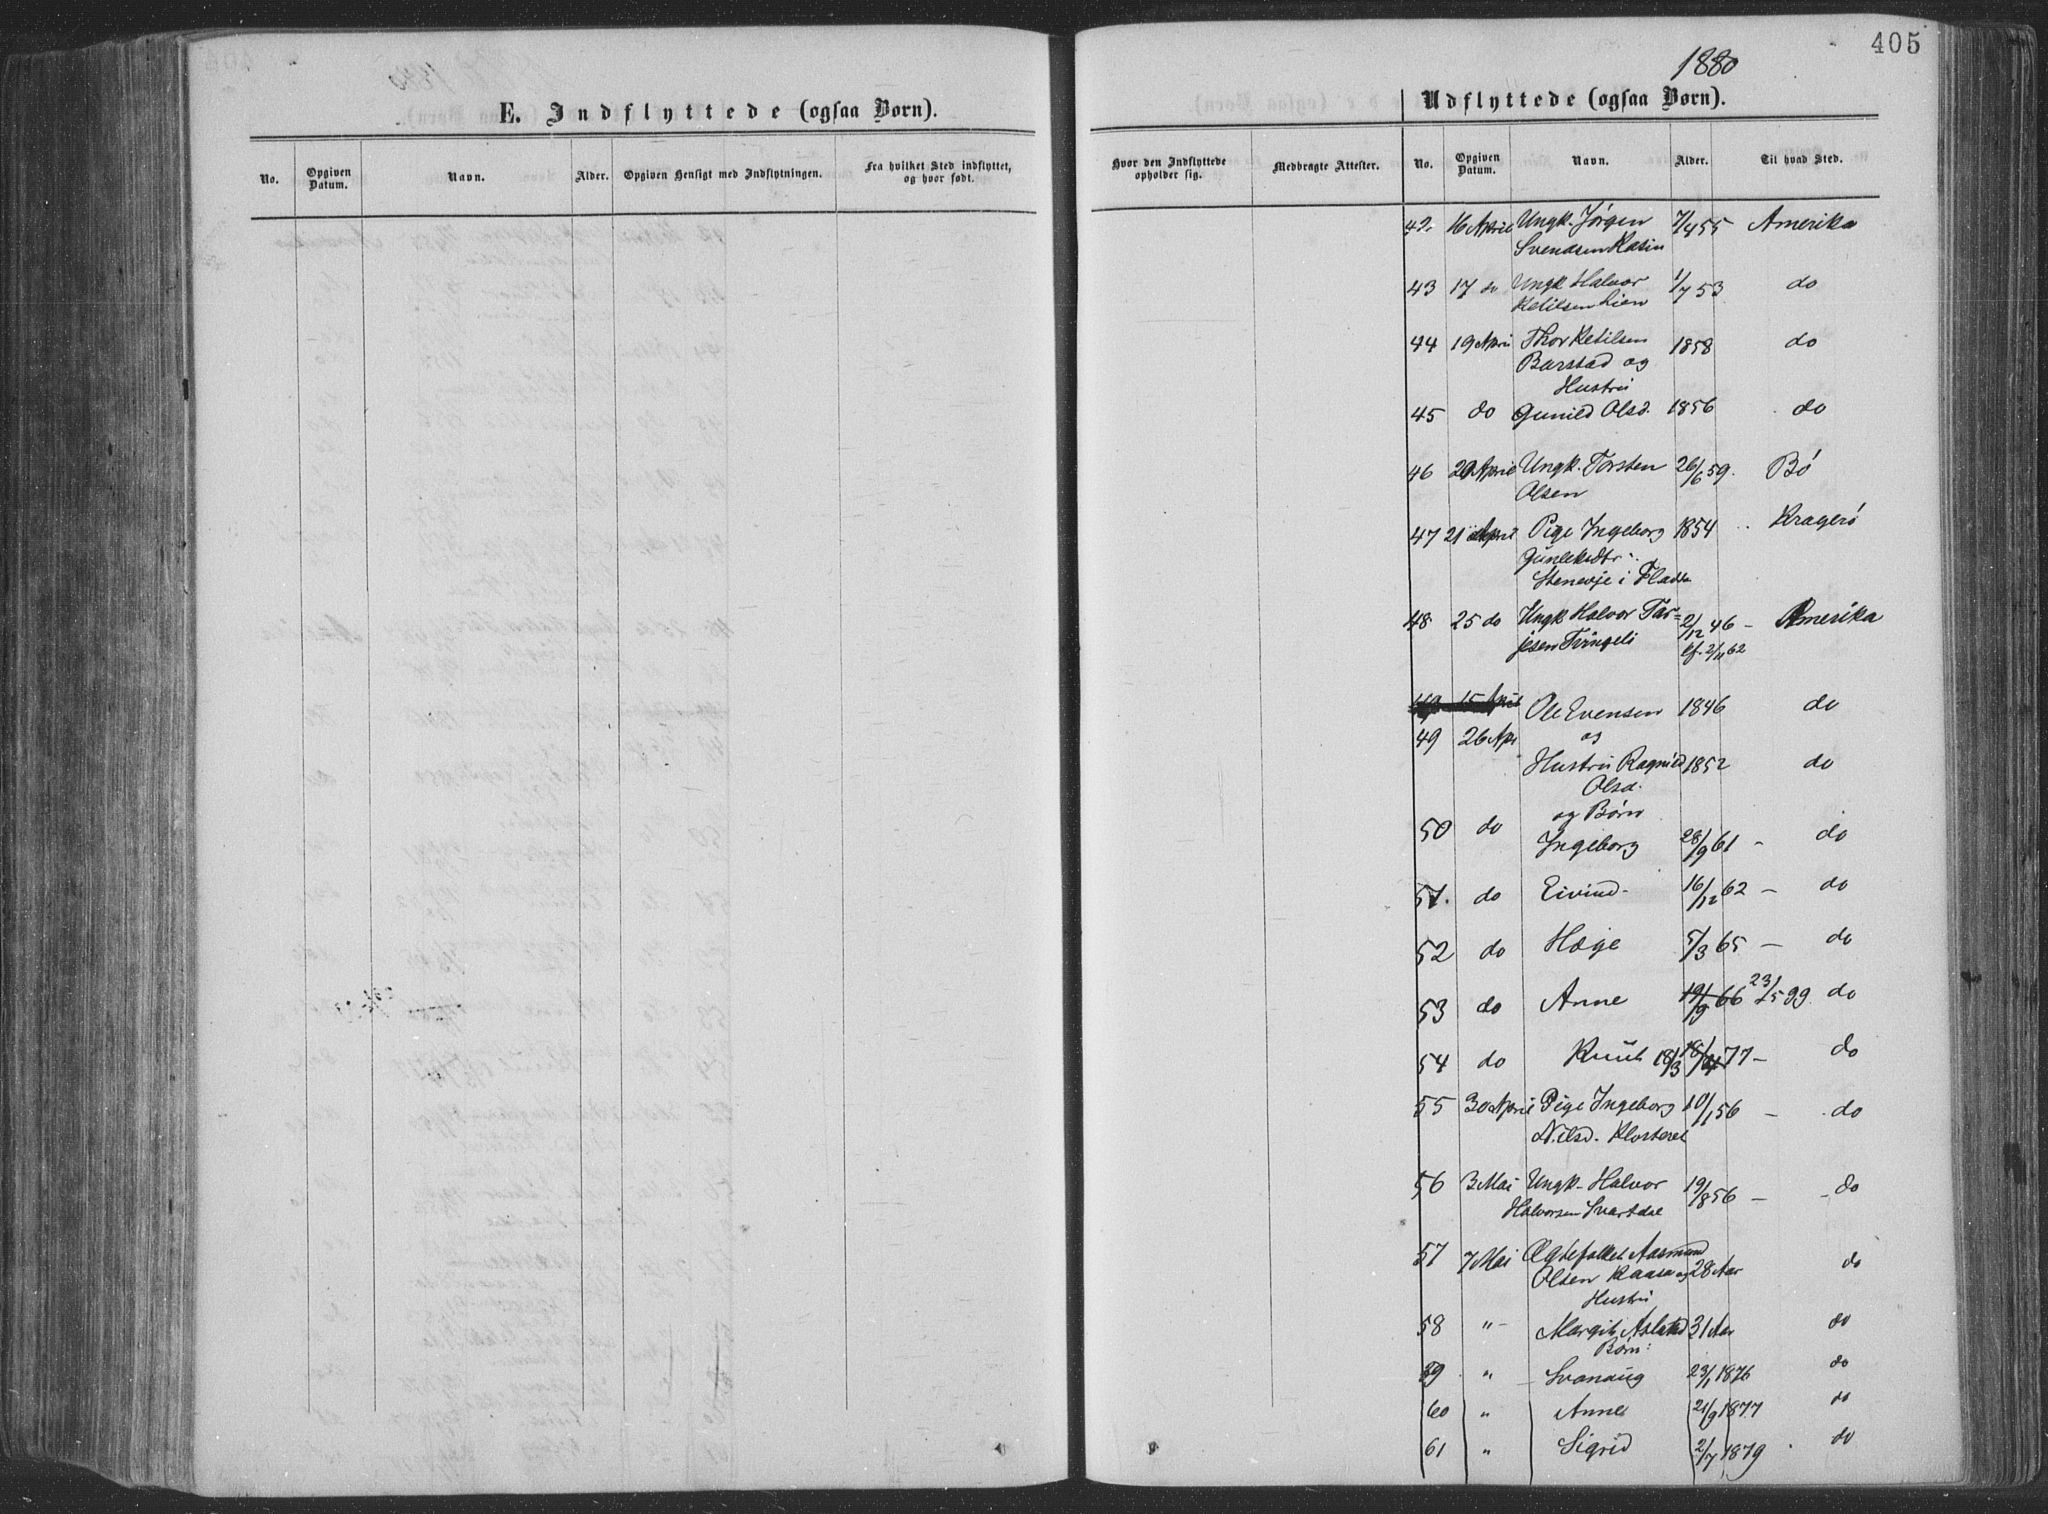 405
1880
E. Indflyttede (ogsaa Børn).
Udflyttede (ogsaa Børn).
No. Opgiven Datum. Navn. Alder. Opgiven Hensigt med Indflytningen. Fra hvilket Sted indflyttet, og hvor født.
Hvor den Indflyttede opholder sig. Medbragte Attester. No. Opgiven Datum. Navn. Alder. Til hvad Sted.
42. 16 April Ungk. Jørgen 7/4 55 Amerika
Svendsen Kasin
43 17 do Ungk Halvor 1/7 53 do
Ketilsen Lien
44 19 April Thor Ketilsen 1858 do
Barstad og
Hustru
45 do Gunild Olsd. 1856 do
46 20 April Ungk. Torsten 26/6 59. Bö
Olsen
47 21 April Pige Ingeborg 1854 Kragerö
Gunleksdtr
Stenevje i Flad
48 25 do Ungk Halvor Tar= 2/12 46 – Amerika
jesen Tvingeli cf. 2/11 62
49 15 April Ole Evensen 1846 do
49 26 Apr og
Hustru Ragnild 1852 do
Olsd.
og Börn
50 do Ingeborg 28/9 61 – do
51. do Eivind 16/12 62 – do
52 do Hæge 5/3 65 – do
53 do Anne 19/9 66 23/5 99. do
54 do Knut 18/3 18/4 77 – do
55 30 April Pige Ingeborg 10/1 56 – do
Nilsd. Klosteret
56 3 Mai Ungk. Halvor 19/8 56 – do
Halvorsen Svartdal
57 7 Mai Ægtefolket Aasmund
Olsen Raasa og 28 Aar do
Hustru
58 " Margit Aslaksd 31 Aar do
Børn:
59 " Svanaug 23/1 1876 do
60 " Anne 21/9 1877 do
61 " Sigrid 2/7 1879 do